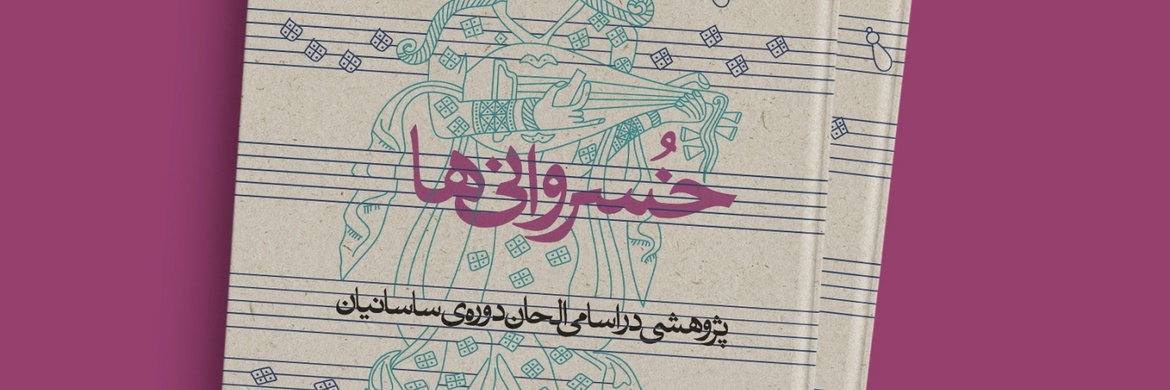 خُسروانی‌ها
پژوهشی در اسامی الحان دوره‌ی ساسانیان